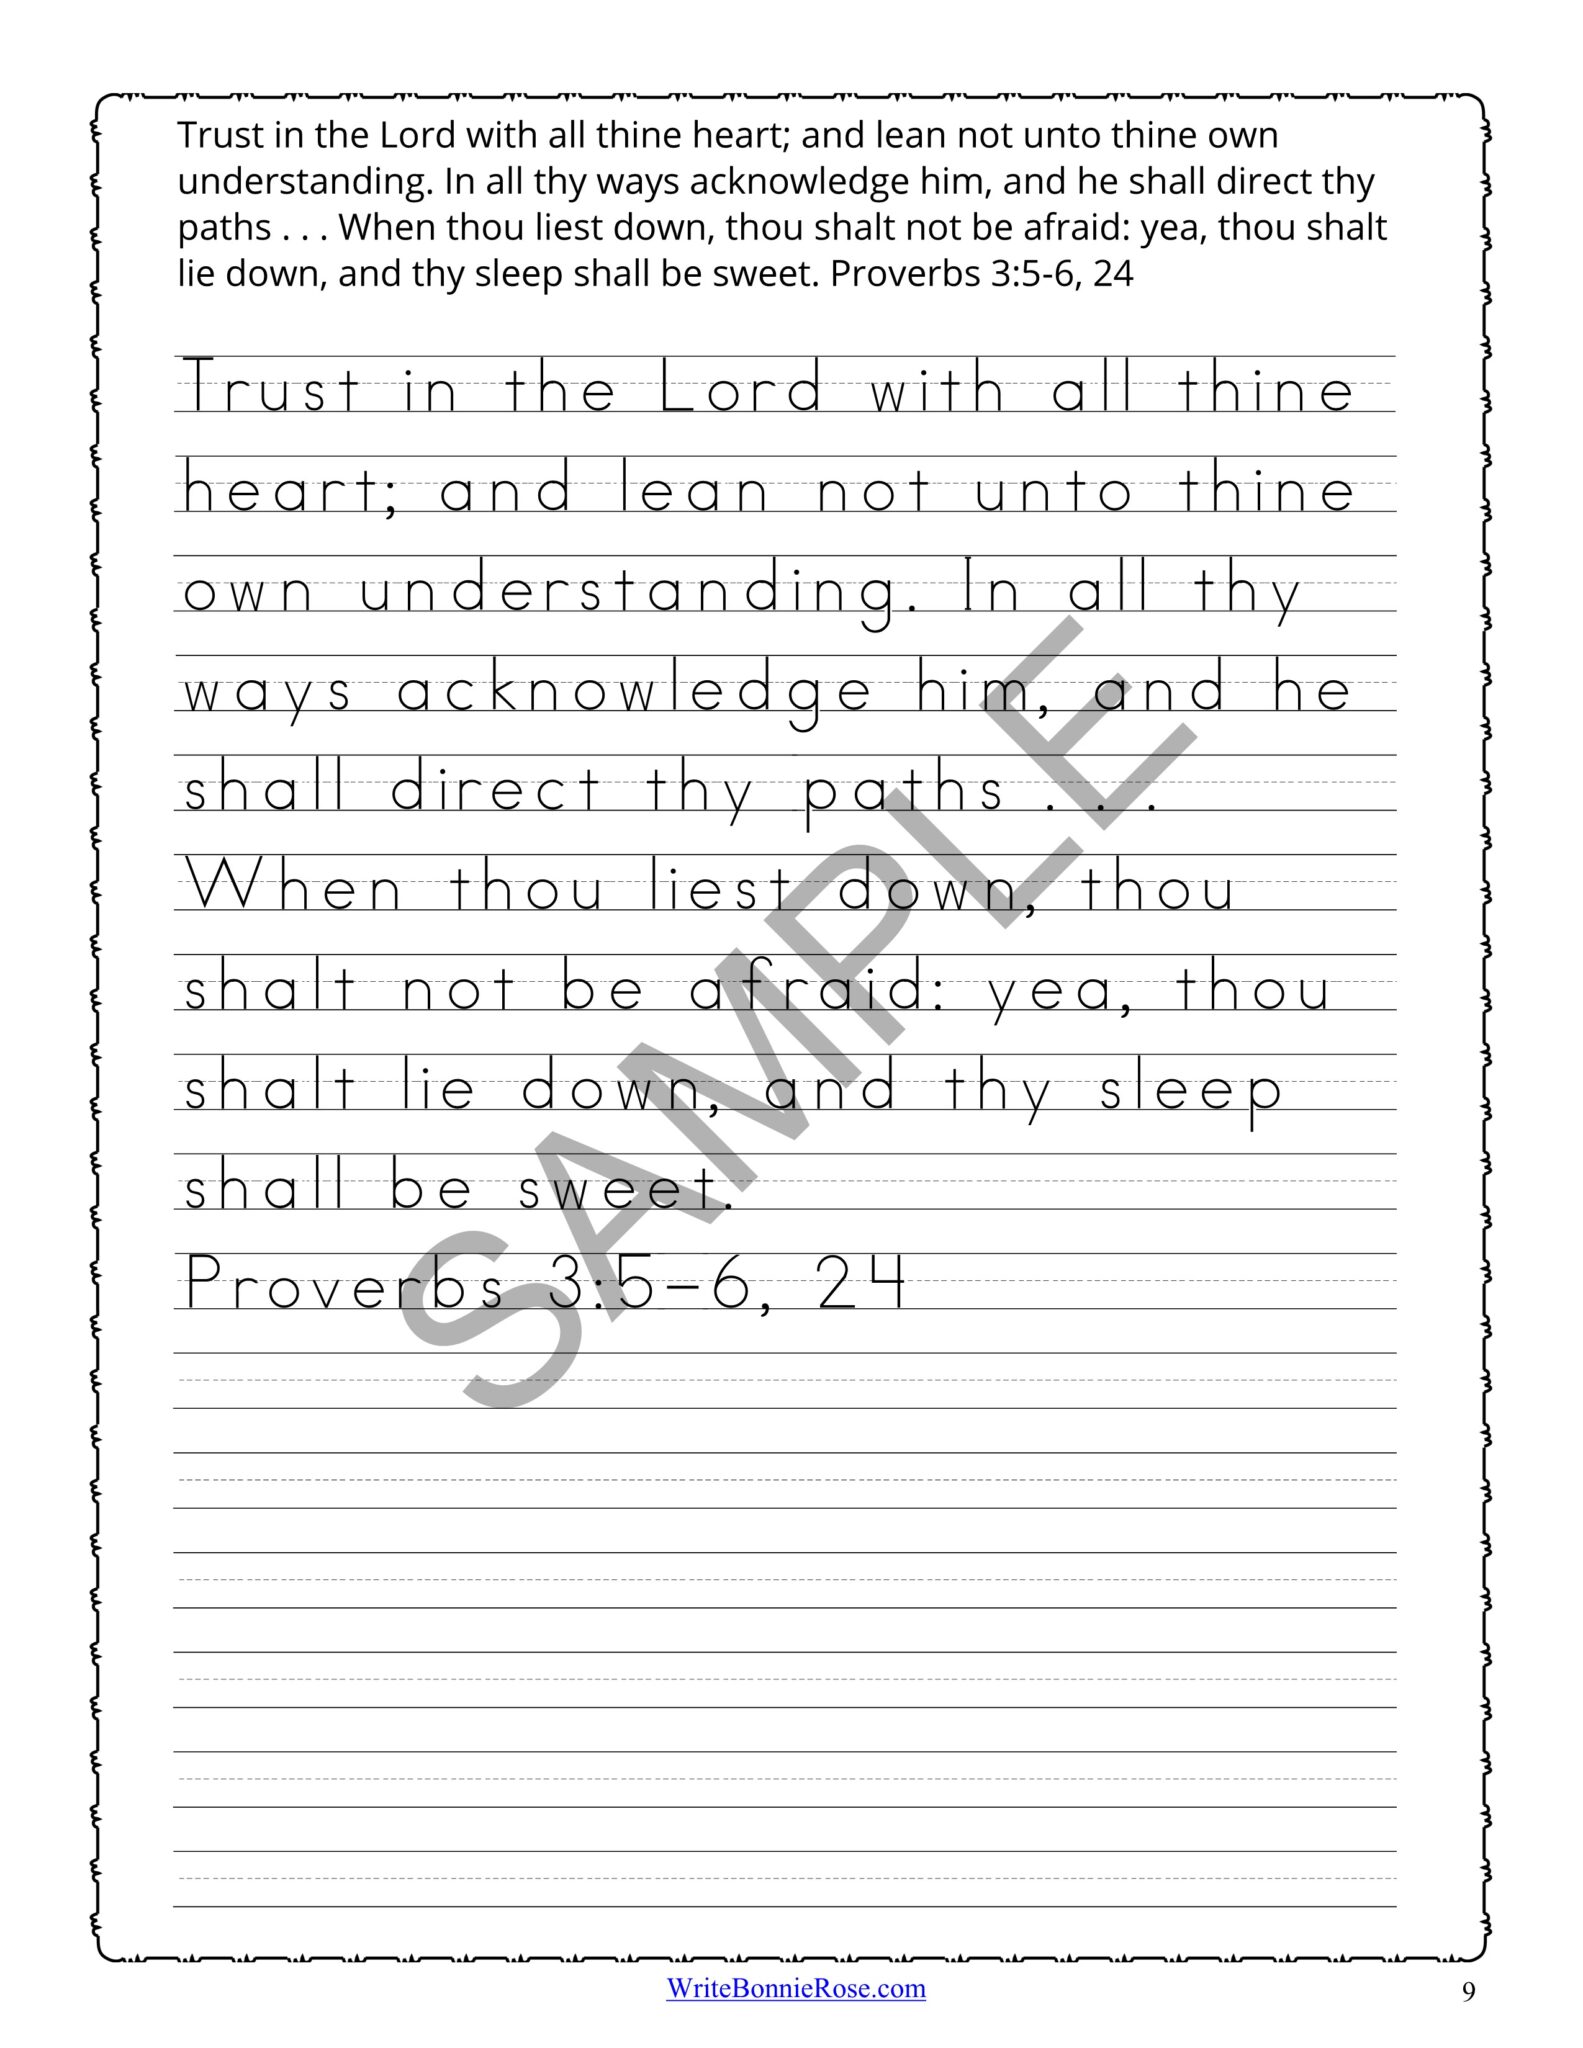 Trust in the Lord with all thine heart; and lean not unto thine own
understanding. In all thy ways acknowledge him, and he shall direct thy
paths . . . When thou liest down, thou shalt not be afraid: yea, thou shalt
lie down, and thy sleep shall be sweet. Proverbs 3:5-6, 24
Trust in the Lord with all thine
heart; and lean not unto thine
own understanding. In all thy
ways acknowledge him, and he
shall direct thy paths . . .
When thou liest down, thou
shalt not be afraid: yea, thou
shalt lie down, and thy sleep
shall be sweet.
Proverbs 3:5-6, 24
SAMPLE
WriteBonnieRose.com
9